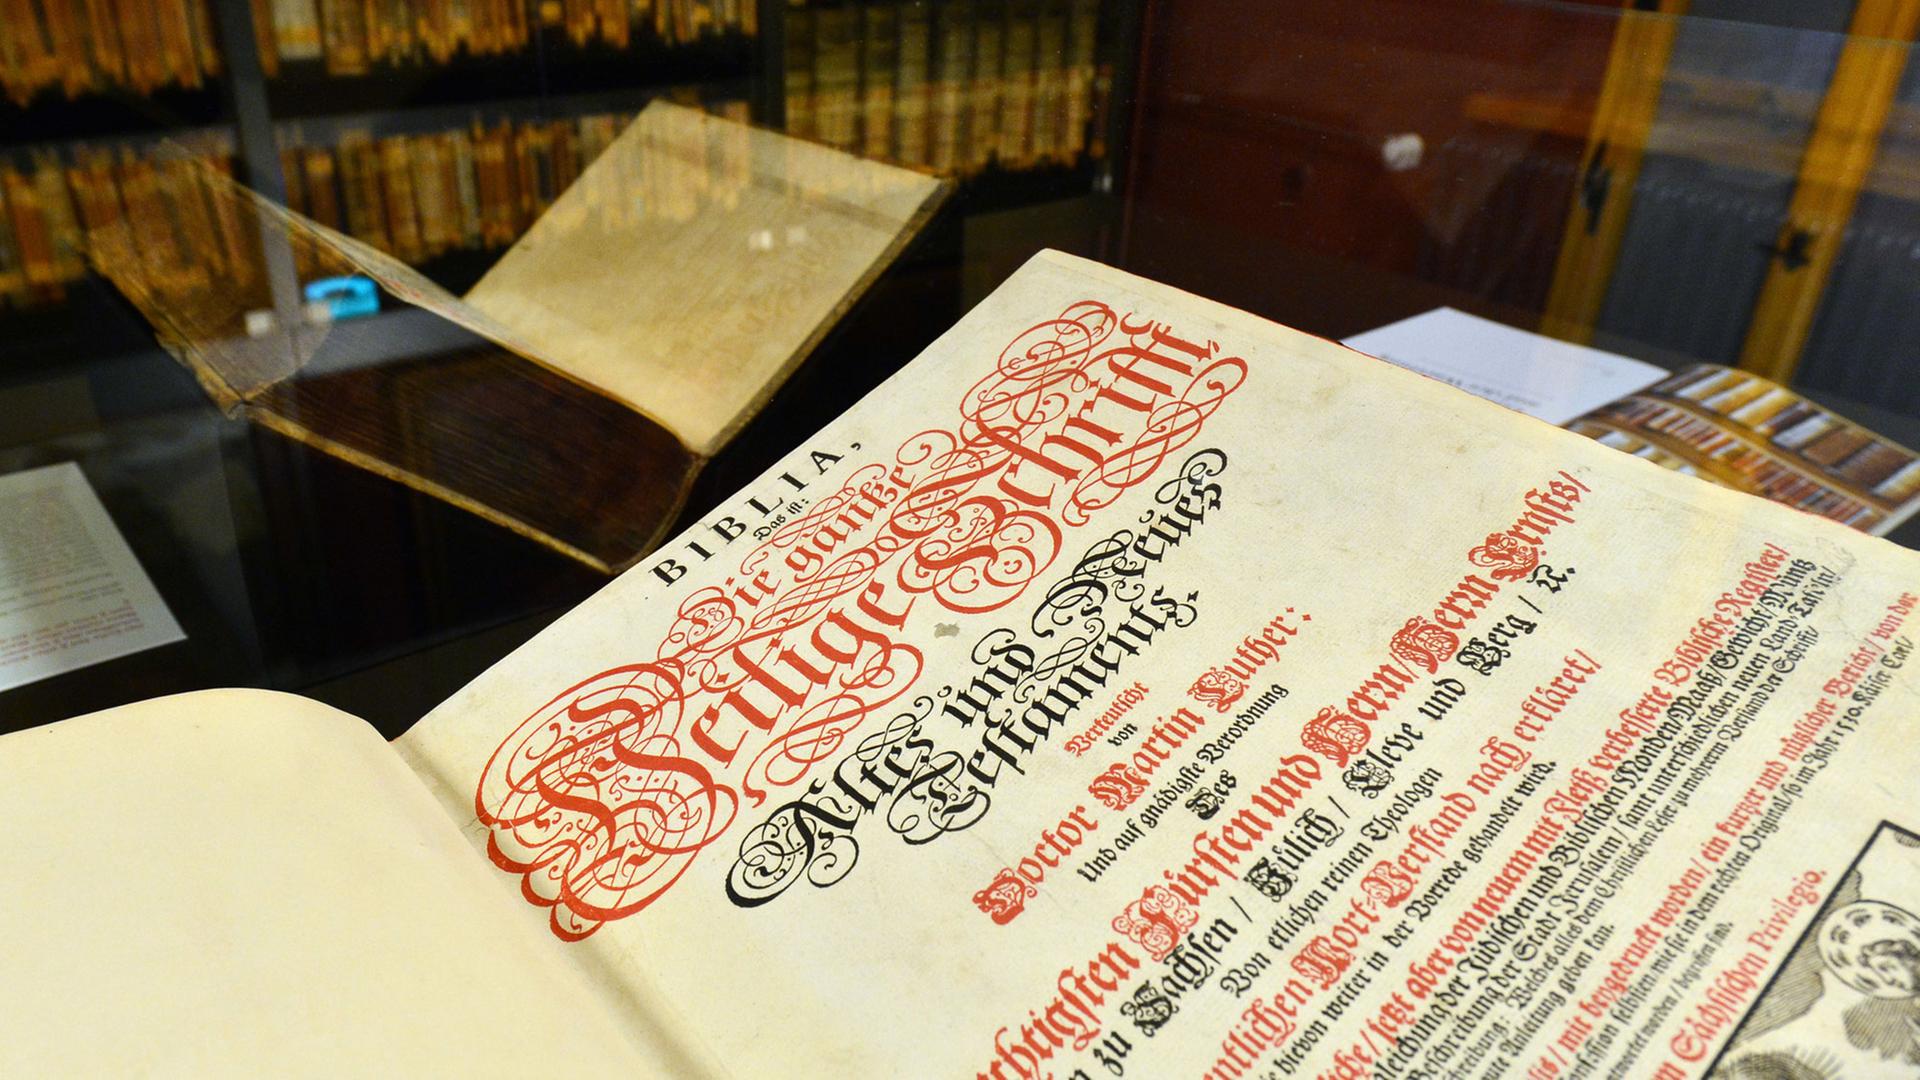 BIBLIA,
Das ist:
Die gantze
Heilige Schrifft
Altes und Neues
Testaments.
Verteutscht
von
Doctor Martin Luther:
Und auf gnädigste Verordnung
Des
Fürsten und Herrn/ Herrn Ernsts/
zu Sachsen / Jülich / Cleve und Berg / ꝛc.
Von etlichen reinen Theologen
Wort-Verstand nach erkläret/
hievon weiter in der Vorrede gehandelt wird.
jetzt aber von neuem mit Fleiß verbesserte Biblische Register/
der Jüdischen und Biblischen Monden/Maaß/Gewicht/Müntz
Beschreibung der Stadt Jerusalem/ samt unterschiedlichen neuen Land-Tafeln/
Welches alles dem Christlichen Leser zu mehrern Verstand der Schrifft/
gute Anleitung geben kan.
mit beygedruckt worden/ ein kurtzer und nützlicher Bericht/ von der
selbsten wie sie in dem rechten Original/so im Jahr 1530. Käiser Carl/
worden/ begriffen sind.
Sächsischen Privilegio.